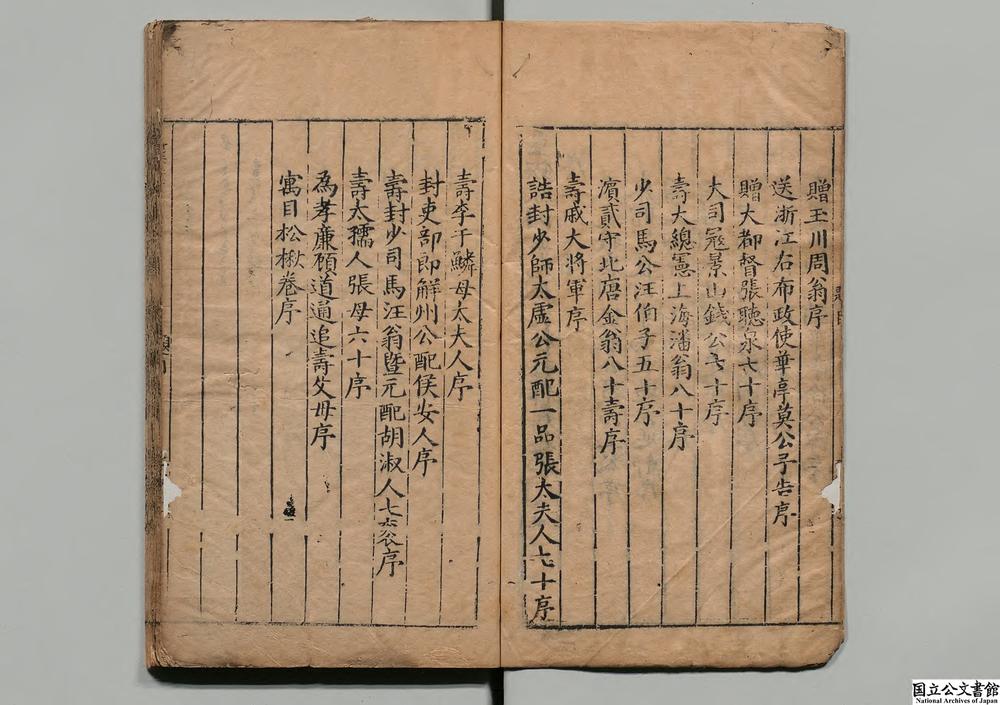 贈玉川周翁序
送浙江右布政使華亭莫公予告序
贈大都督張聽泉七十序
大司冦景山錢公六十序
壽大總憲上海潘翁八十序
少司馬公汪伯子五十序
濵貳守北唐金翁八十壽序
壽戚大將軍序
誥封少師太虛公元配一品張太夫人七十序
壽李于鱗母太夫人序
封吏部郎解州公配侯安人序
壽封少司馬汪翁暨元配胡淑人七袠序
壽太孺人張母六十序
為孝廉顧道通追壽父母序
寓目松楸卷序
国立公文書館
National Archives of Japan